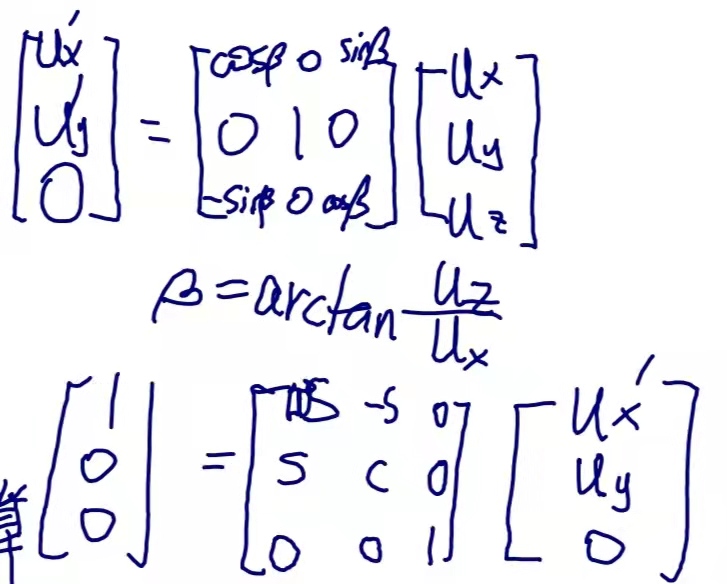 [ux' uy' 0] = [cosβ 0 sinβ; 0 1 0; -sinβ 0 cosβ] [ux uy uz]
β = arctan uz/ux
算 [1 0 0] = [cos -s 0; s c 0; 0 0 1] [ux' uy 0]